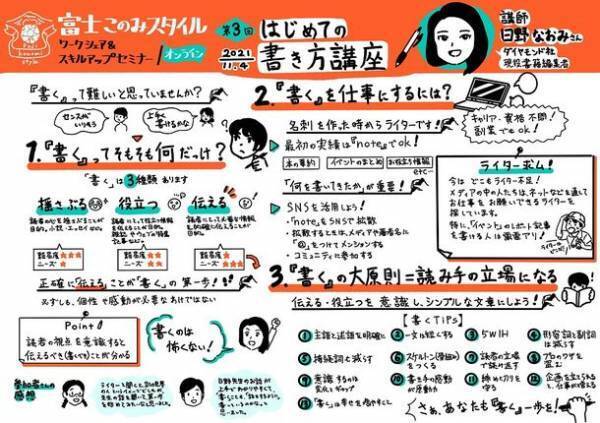 富士このみスタイル
ワークシェア&
スキルアップセミナー/オンライン
第3回
2021
11.4
はじめての
書き方講座
講師
日野なおみさん
ダイヤモンド社
現役書籍編集者
『書く』って難しいと思っていませんか?
センスが
いりそう
上手く
書けるかな
1.『書く』ってそもそも何だっけ?
『書く』は3種類あります
揺さぶる
役立つ
伝える
読者の心を揺さぶることが
目的。小説・エッセイなど。
難易度
ニーズ
難易度
ニーズ
難易度
ニーズ
正確に『伝える』ことが『書く』の第一歩!
必ずしも、個性や感動が必要なわけではない
Point!
読者の視点を意識すると
伝えるべき(書くべき)ことが分かる
書くのは
怖くない!
参加者さんの
感想
2.『書く』を仕事にするには?
名刺を作った時からライターです!
キャリア・資格不問!
副業でもOK!
最初の実績は『note』でOK!
本の要約
イベントのまとめ
お役立ち情報
etc…
「何を書いてきたか」が重要!
SNSを活用しよう!
・『note』をSNSで拡散
・拡散するときは、メディアや著者名に
「@」をつけてメンションする
・コミュニティに参加する
ライター求ム!
今はどこもライター不足!
メディアの中の人たちは、ネットなどを通じて
お仕事をお願いできるライターを
探しています。
特に、「イベント」のレポート記事
を書ける人は重宝アリ!
3.『書く』の大原則=読み手の立場になる
伝える・役立つを意識し、シンプルな文章にしよう!
【書くTips】
① 主語と述語を明確に
② 一文は短くする
③ 5W1H
④ 形容詞と副詞
は減らす
⑤ 接続詞を減らす
⑥ スケルトン(骨組み)
をつくる
⑦ 読者の立場
で読み直す
⑧ プロのワザを
盗む
⑨ 意識するのは
変化とギャップ
⑩ 書き手の感動
が原動力
⑪ 締めくくりを
守る
⑫ 企画を立てられる
と、仕事が増える
⑬『書く』は幸せを増やすこと
さぁ、あなたも『書く』一歩を!